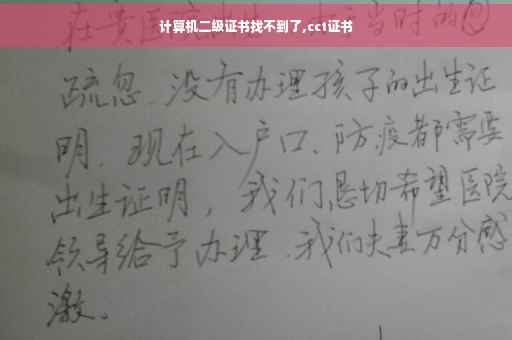 计算机二级证书找不到了,cct证书
在贵医院出生,由于当时的
疏忽、没有办理孩子的出生证
明、现在入户口、防疫都需要
出生证明，我们恳切希望医院
领导给予办理、我们夫妻万分感
激。